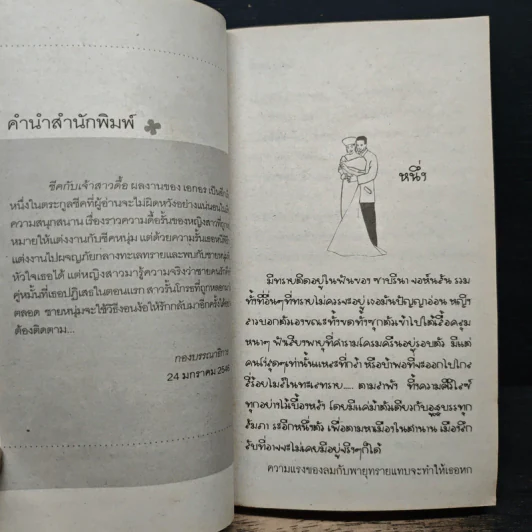 คำนำสำนักพิมพ์
ชีคกับเจ้าสาวดื้อ ผลงานของ เอกอร เป็นอีก
หนึ่งในตระกูลชีคที่ผู้อ่านจะไม่ผิดหวังอย่างแน่นอนใน
ความสนุกสนาน เรื่องราวความดื้อรั้นของหญิงสาวที่ถูก
หมายให้แต่งงานกับชีคหนุ่ม แต่ด้วยความรั้นเธอหนี
แต่งงานไปผจญภัยกลางทะเลทรายและพบกับชายหนุ่ม
หัวใจเธอได้ แต่หญิงสาวมารู้ความจริงว่าชายคน
คู่หมั้นที่เธอปฏิเสธในตอนแรก สาวรั้นโกรธที่ถูก
ตลอด ชายหนุ่มจะใช้วิธีง้องอนให้รักกลับมาอีกครั้ง
ต้องติดตาม...
กองบรรณาธิการ
24 มกราคม 2546
หนึ่ง
มีทรายติดอยู่ในฟันของ ซาบรีนา จอห์นสัน รวม
ทั้งที่อื่นๆที่ทรายไม่ควรจะอยู่ เธอมันปัญญาอ่อน หญิง
สาวบอกตัวเองขณะที่ขดตัวซุกต้นเข้าไปใต้เสื้อคลุม
หนาๆ ฟังเสียงพายุที่คำรามโครมครืนอยู่รอบตัว มีแต่
คนโง่สุดๆเท่านั้นแหละที่กล้า หรือบ้าพอที่จะออกไปไกล
สี่ร้อยไมล์ในทะเลทราย.... ตามลำพัง ทิ้งความศิวิไลซ์
ทุกอย่างไว้เบื้องหลัง โดยมีแค่ม้าตัวเดียวกับอูฐบรรทุก
สัมภาระอีกหนึ่งตัว เพื่อตามหาเมืองในตำนาน เมืองลึก
ลับที่อาจจะไม่เคยมีอยู่จริงๆก็ได้
ความแรงของลมกับพายุทรายแทบจะทำให้เธอหก